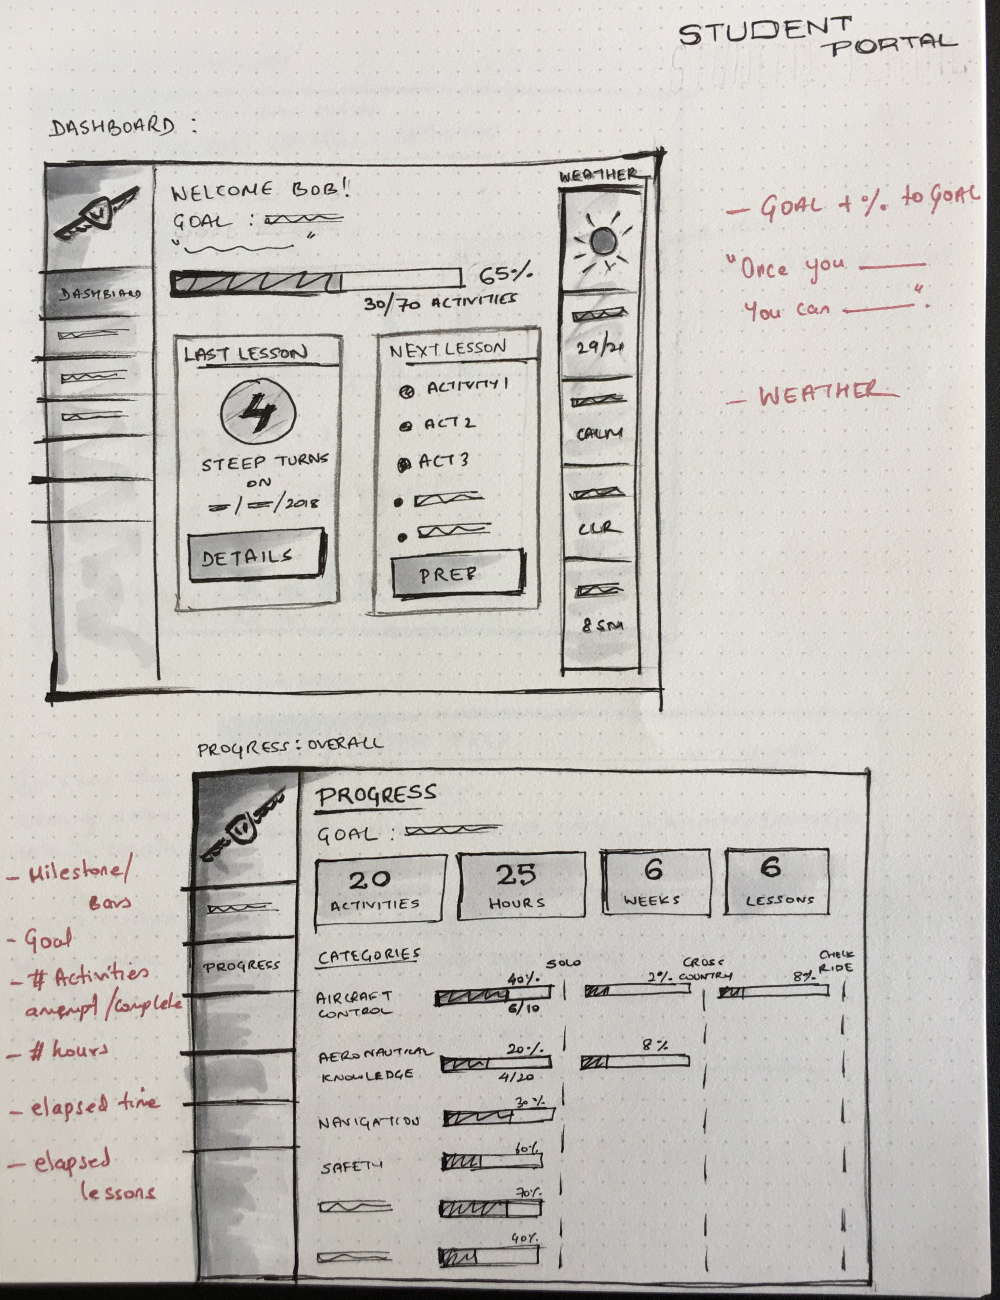 STUDENT
PORTAL
DASHBOARD :
WELCOME BOB!
GOAL :
" "
65%
30/70 ACTIVITIES
DASHBOARD
LAST LESSON
4
STEEP TURNS
ON
/ /2018
DETAILS
NEXT LESSON
ACTIVITY 1
ACT 2
ACT 3
PREP
WEATHER
29/21
CALM
CLR
8 SM
- GOAL + % to GOAL
"Once you ____
You can ____".
- WEATHER
PROGRESS : OVERALL
PROGRESS
GOAL :
20
ACTIVITIES
25
HOURS
6
WEEKS
6
LESSONS
PROGRESS
CATEGORIES
SOLO
CROSS
COUNTRY
CHECK
RIDE
AIRCRAFT
CONTROL
40%
6/10
2%
8%
AERONAUTICAL
KNOWLEDGE
20%
4/20
8%
NAVIGATION
30%
SAFETY
60%
70%
40%
- Milestone/
Bars
- Goal
- # Activities
attempt/complete
- # hours
- elapsed time
- elapsed
lessons